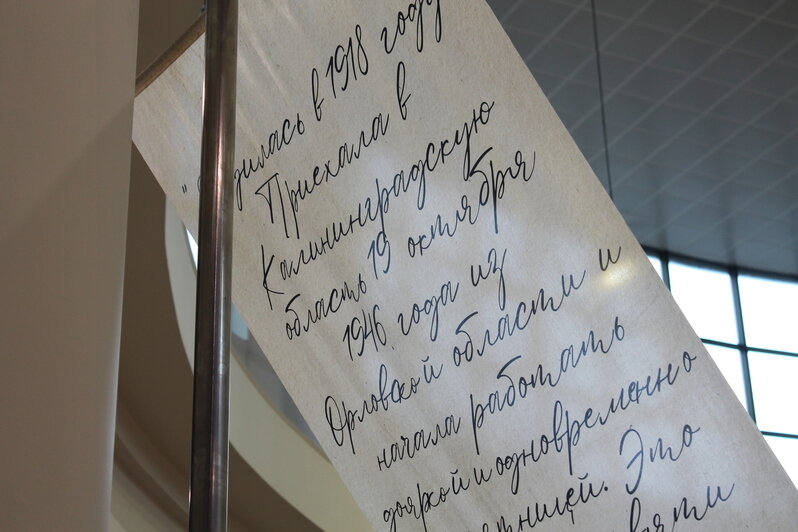 в 1918 году
Приехала в
Калининградскую
область 19 октября
1946 года из
Орловской области и
начала работать
дояркой и одновременно
Это